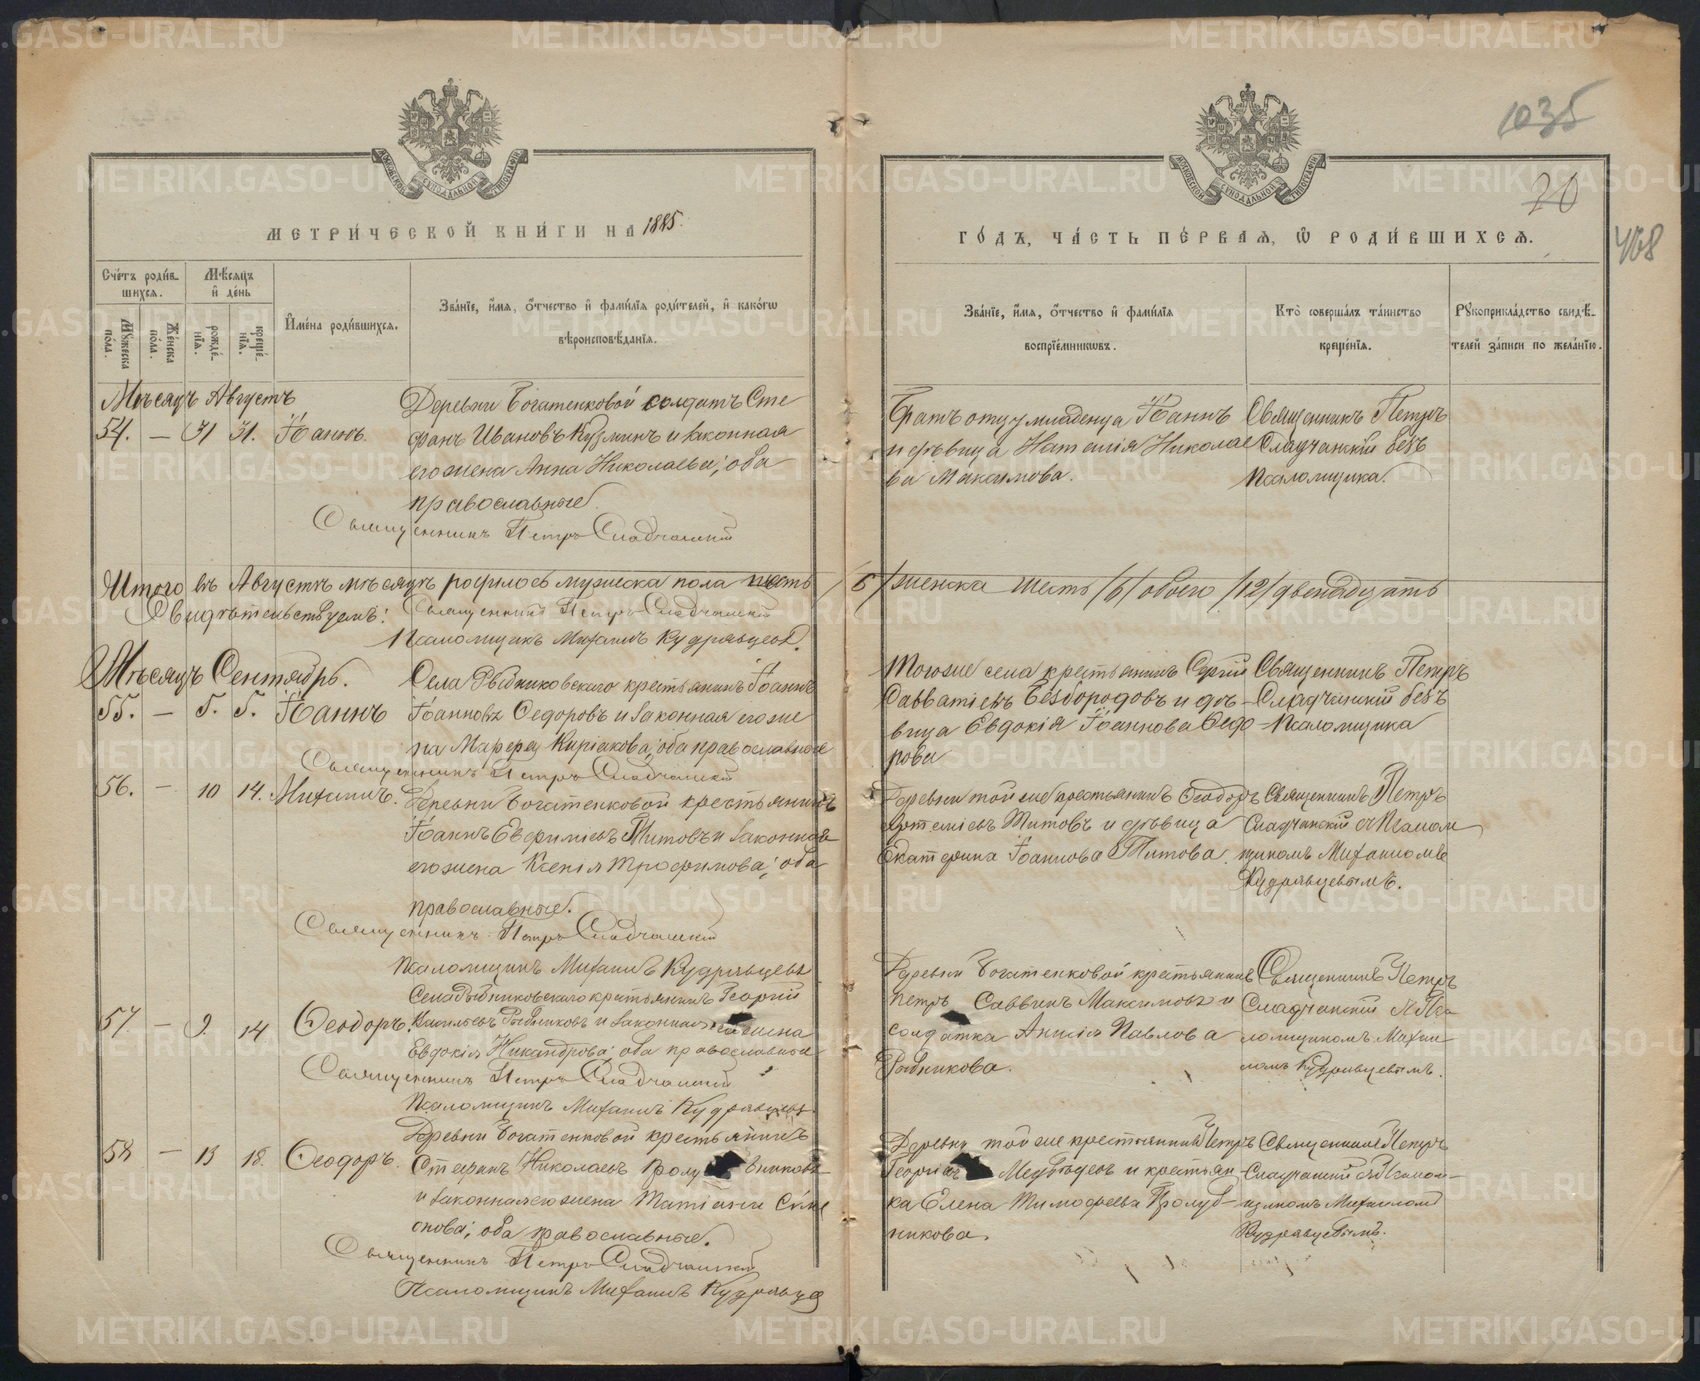 1035
20
468
МЕТРИ́ЧЕСКОЙ КНИ́ГИ НА 1885.
ГО́ДЪ, ЧА́СТЬ ПЕ́РВАЯ, Ѡ҆ РОДИ́ВШИХСѦ.
Сче́тъ роди́в-
шихсѧ.
Мꙋжеска
по́ла.
Же́нска
по́ла.
Мѣ́сѧцъ
и҆ де́нь
рожде́-
нїѧ.
креще́-
нїѧ.
И҆мена̀ роди́вшихсѧ.
Зва́нїе, и҆́мѧ, ѻ҆́тчество и҆ фами́лїѧ роди́телей, и҆ како́гѡ
вѣроисповѣ́данїѧ.
Зва́нїе, и҆́мѧ, ѻ҆́тчество и҆ фами́лїѧ
воспрїе́мникѡвъ.
Кто̀ соверша́лъ та́инство
креще́нїѧ.
Рꙋкоприкла́дство свидѣ́-
телей за́писи по жела́нїю.
Мѣсяцъ Августъ
54. — 31 31. Іоаннъ.
Деревни Богатенковой солдатъ Сте
фанъ Ивановъ Кузминъ и законная
его жена Анна Николаева; оба
православные.
Священникъ Петръ Сладчанскій
Братъ отцу младенца Іоаннъ
и дѣвица Наталія Николае
ва Максимова.
Священникъ Петръ
Сладчанскій безъ
псаломщика.
Итого въ Августѣ мѣсяцѣ родилось мужеска пола шесть /6/ женска шесть /6/ обоего /12/ двенадцать
Свидѣтельствуемъ: Священникъ Петръ Сладчанскій
Псаломщикъ Михаилъ Кудрявцевъ.
Мѣсяцъ Сентябрь.
55. — 5. 5. Іоаннъ
Села Рыбниковскаго крестьянинъ Іоаннъ
Іоанновъ Ѳедоровъ и законная его же
на Марѳа Киріакова; оба православные
Священникъ Петръ Сладчанскій
Тогоже села крестьянинъ Сергій
Савватіевъ Безбородовъ и дѣ-
вица Евдокія Іоаннова Ѳедо-
рова
Священникъ Петръ
Сладчанскій безъ
псаломщика
56. — 10 14. Михаилъ.
Деревни Богатенковой крестьянинъ
Іоаннъ Евфиміевъ Титовъ и законная
его жена Ксенія Трофимова; оба
православные.
Священникъ Петръ Сладчанскій
Псаломщикъ Михаилъ Кудрявцевъ
Деревни той же крестьянинъ Ѳеодоръ
Артеміевъ Титовъ и дѣвица
Екатерина Іоаннова Титова.
Священникъ Петръ
Сладчанскій съ Псалом
щикомъ Михаиломъ
Кудрявцевымъ.
57. — 9. 14 Ѳеодоръ.
Села Рыбниковскаго крестьянинъ Георгій
Васильевъ Рыбниковъ и законная его жена
Евдокія Никандрова; оба православные
Священникъ Петръ Сладчанскій
Псаломщикъ Михаилъ Кудрявцевъ
Деревни Богатенковой крестьянинъ
Петръ Саввинъ Максимовъ и
солдатка Анисія Павлова
Рыбникова.
Священникъ Петръ
Сладчанскій съ Пса
ломщикомъ Михаи
ломъ Кудрявцевымъ.
58 — 13 18. Ѳеодоръ.
Деревни Богатенковой крестьянинъ
Стефанъ Николаевъ Пролубниковъ
и законная его жена Татіана Симе
онова; оба православные.
Священникъ Петръ Сладчанскій
Псаломщикъ Михаилъ Кудрявцев
Деревни той же крестьянинъ Петръ
Георгіевъ Медвѣдевъ и крестьян-
ка Елена Тимофеева Пролуб-
никова.
Священникъ Петръ
Сладчанскій съ Псалом-
щикомъ Михаиломъ
Кудрявцевымъ.